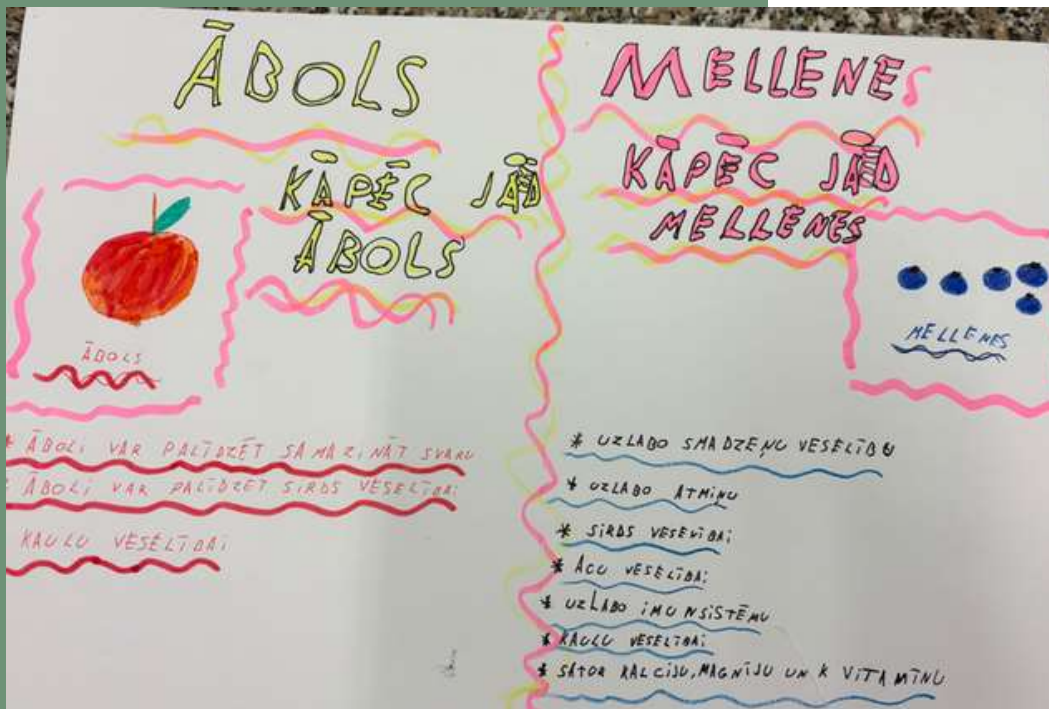 ĀBOLS
KĀPĒC JĀĒD
ĀBOLS
ĀBOLS
* ĀBOLI VAR PALĪDZĒT SAMAZINĀT SVARU
* ĀBOLI VAR PALĪDZĒT SIRDS VESELĪBAI
KAULU VESELĪBAI
MELLENES
KĀPĒC JĀĒD
MELLENES
MELLENES
* UZLABO SMADZEŅU VESELĪBU
* UZLABO ATMIŅU
* SIRDS VESELĪBAI
* ACU VESELĪBAI
* UZLABO IMUNSISTĒMU
* KAULU VESELĪBAI
* SATUR KALCIJU, MAGNIJU UN K VITAMĪNU